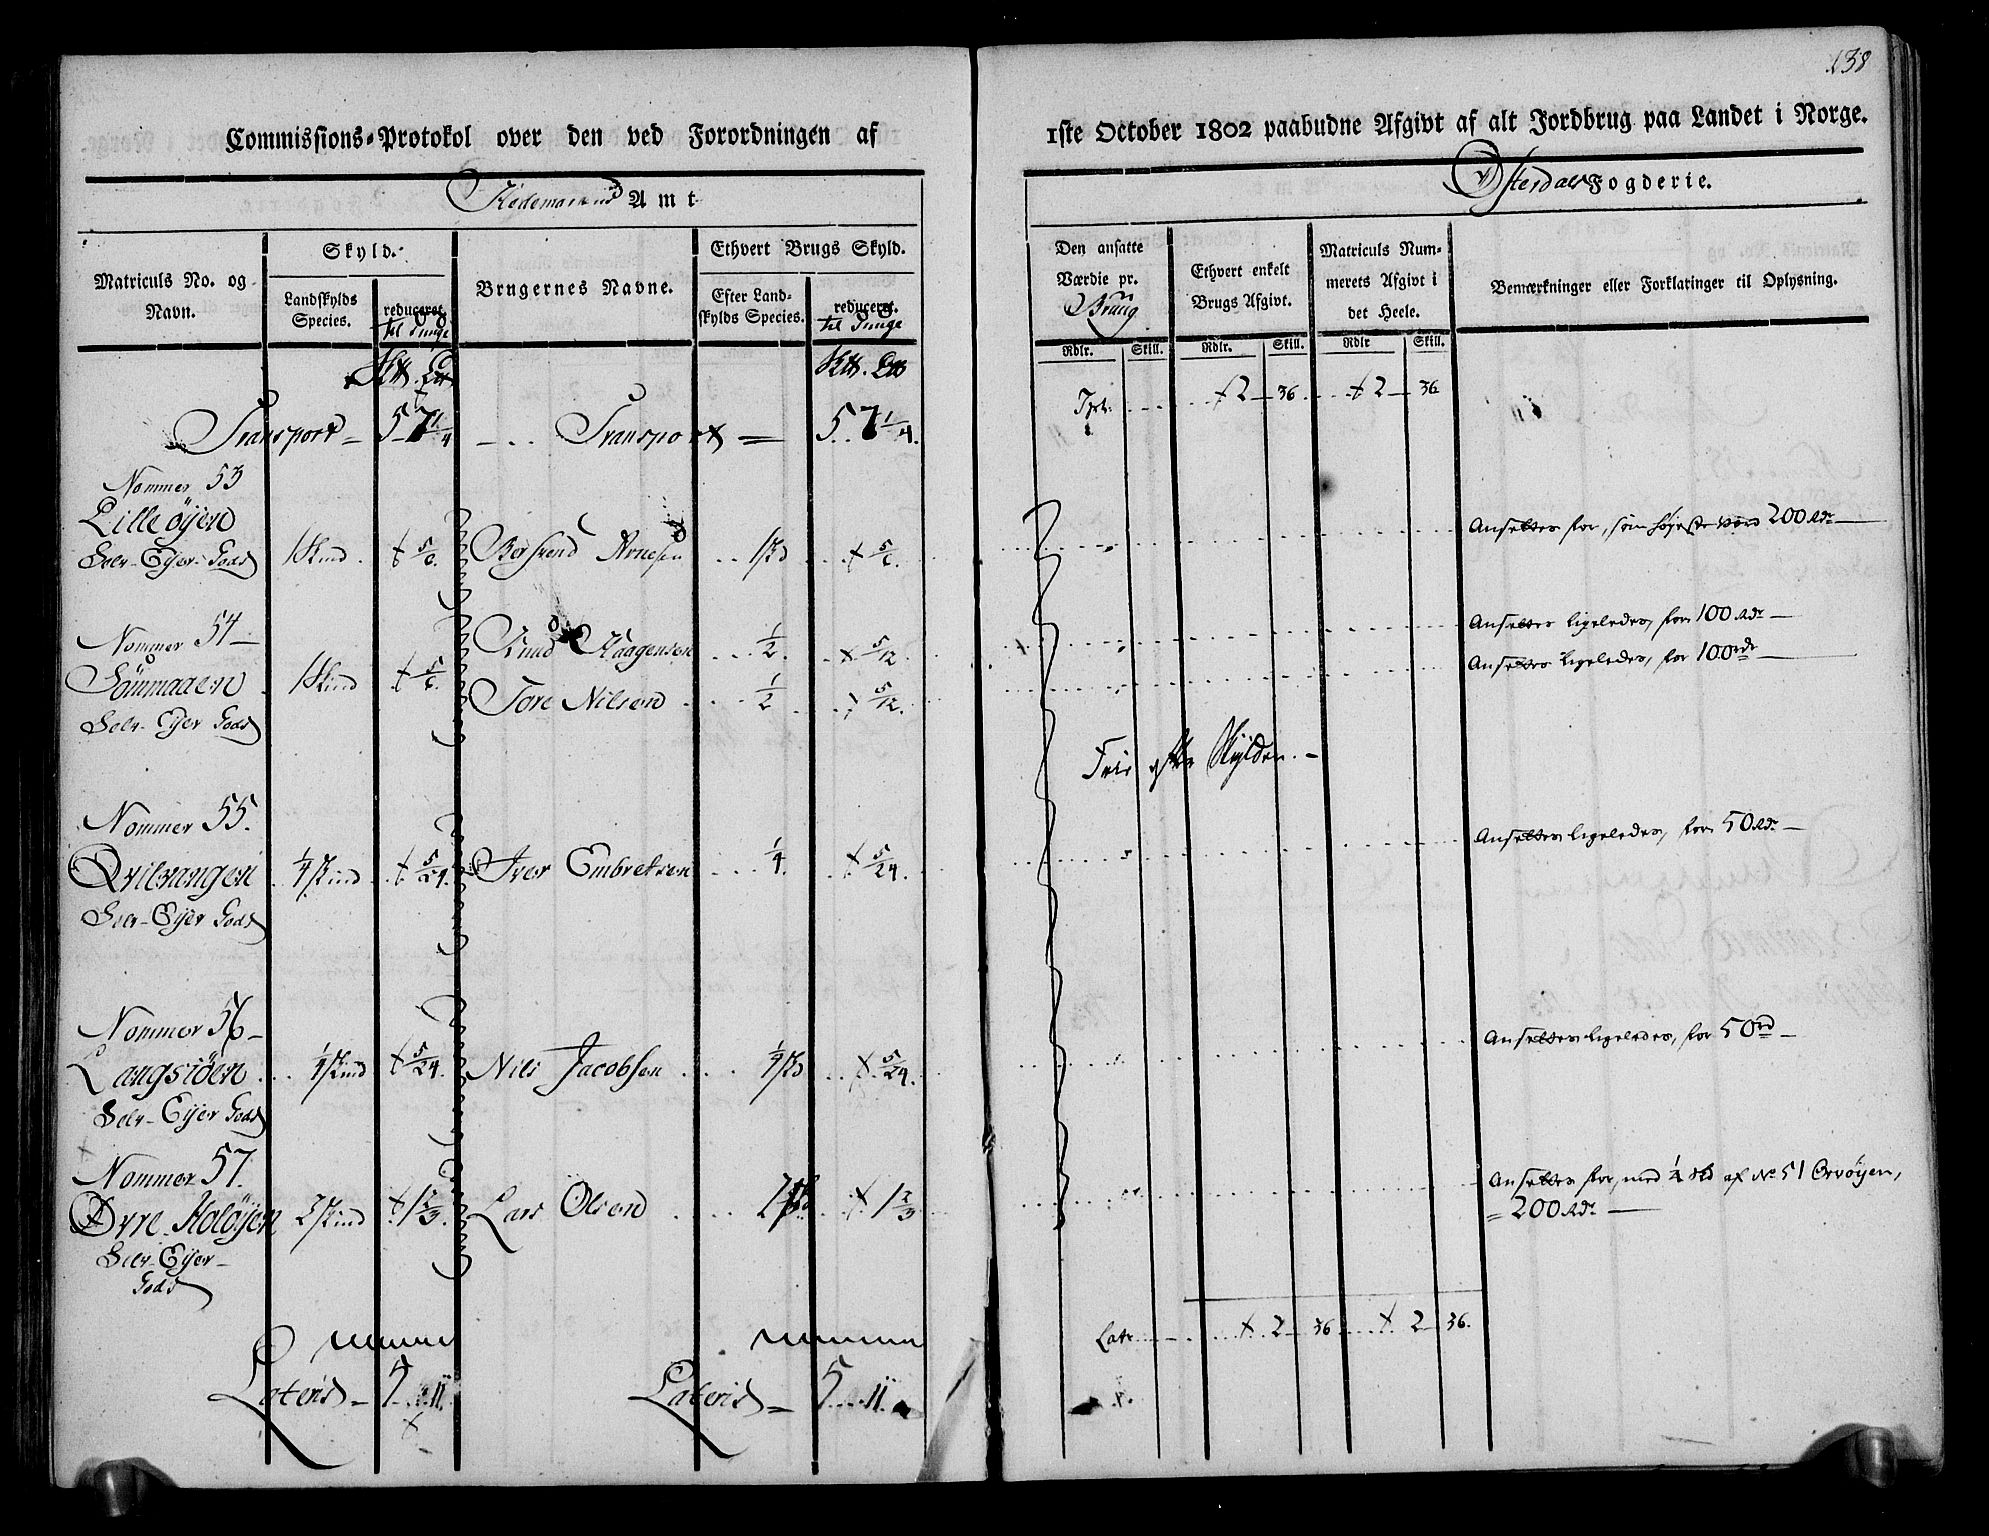 138
Commissions-Protokol over den ved Forordningen af 1ste October 1802 paabudne Afgivt af alt Jordbrug paa Landet i Norge.
Hedemarkens Amt
Østerdals Fogderie.
Matriculs No. og Navn.
Skyld.
Landskylds Species.
reduceret til Tunge
Brugernes Navne.
Ethvert Brugs Skyld.
Efter Landskylds Species.
reduceret. til Tunge
Den ansatte Værdie pr. Brug
Ethvert enkelt Brugs Afgivt.
Matriculs Nummerets Afgivt i det Heele.
Bemærkninger eller Forklaringer til Oplysning.
Rdlr. Skill. Rdlr. Skill. Rdlr Skill.
Transport = 5 7 1/4 Transport = 5 7 1/4. Tpt. 2 36 2 36
Nommer 53
Lille øyen
Selv-Eyer-Gods 1 Skind 5/6. Arnesen 1 Skd 5/6. Ansettes for, som høyeste værd 200 Rdr
Nommer 54
Selv-Eyer Gods 1 Skind 5/6. Knud Haagensen 1/2. 5/12 Ansettes ligeledes, for 100 Rdr
Tore Nilsen 1/2 5/12. Ansettes ligeledes, for 100 rdr
Frie efter Skylden.
Nommer 55.
Qvilvangen 1/4 Skind 5/24. Iver Embretsen 1/4. 5/24. Ansettes ligeledes, for 50 Rdr
Selv-Eyer Gods
Nommer 56
Langsiöen 1/4 Skind 5/24. Nils Jacobsen 1/4 Skd 5/24. Ansettes ligeledes, for 50 rd
Selv-Eyer Gods
Nommer 57.
Øvre Koløyen 2 Skind 1 2/3. Lars Olsen 2 Skd 1 2/3 Ansettes for, med 1/4 Skd af No 51 Orvøyen,
= 200 Rdr
Selv-Eyer
Gods
Latr 2 36 2 36.
Lateris 11. Lateris = 5 11.